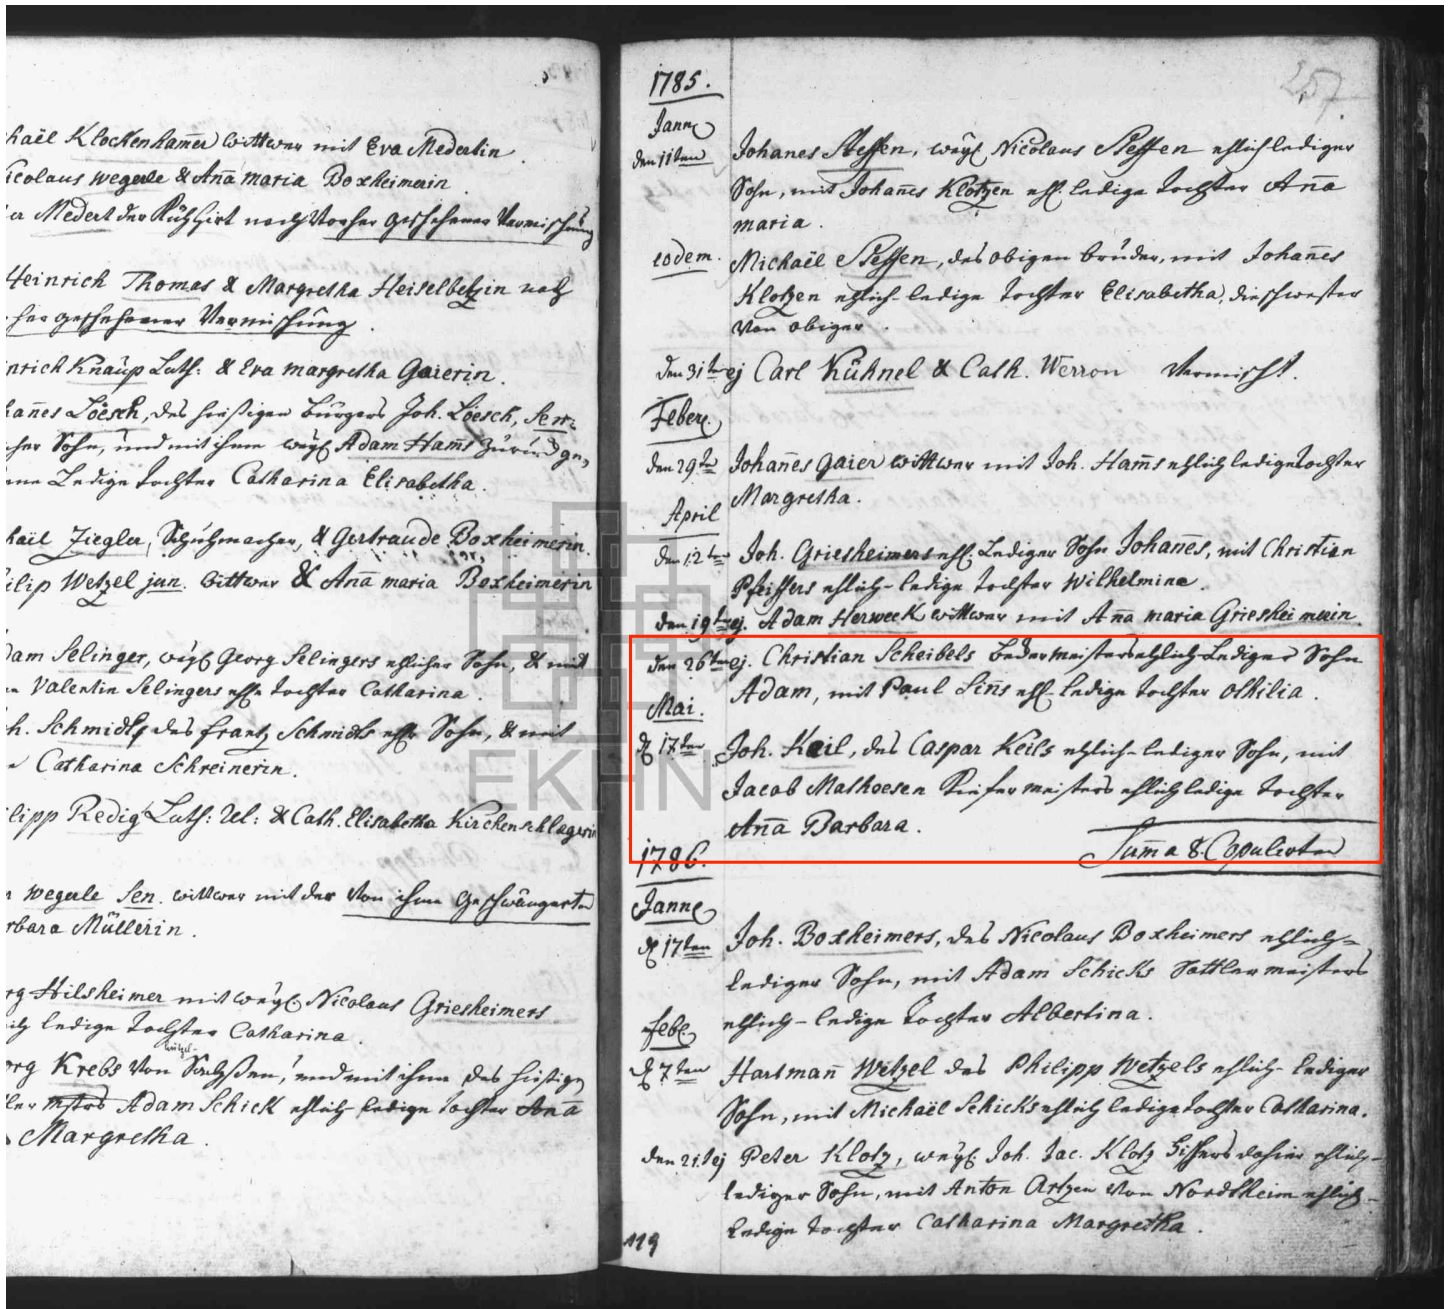 haël Klockenham̄er wittwer mit Eva Medertin.
icolaus wegerle & Anna maria Boxheimerin.
Medert der Kühhirt nach vorher geschehener Vermischung
Heinrich Thomas & Margretha Heiselbetzin nach
her geschehener Vermischung.
nrich Knaup Luth: & Eva margretha Gaierin.
han̄es Löesch, des hiesigen Bürgers Joh. Löesch, Sen:
cher Sohn, und mit ihme weyl. Adam Ham̄s zurückge-
ene Ledige tochter Catharina Elisabetha.
haël Ziegler, Schuhmacher, & Gertraude Boxheimerin.
ilip Wetzel jun. wittwer & An̄a maria Boxheimerin
dam Selinger, weyl Georg Selingers ehlicher Sohn, & mit
Valentin Selingers ehl tochter Catharina.
h. Schmidt, des frantz Schmidts ehl Sohn, & mit
Catharina Schreinerin.
ilipp Redig Luth: Rel: & Cath. Elisabetha Kirchenschlagerin
wegerle Sen. wittwer mit der von ihme geschwängerten
rbara Müllerin.
rg Hilsheimer mit weyl. Nicolaus Griesheimers
ledige tochter Catharina.
org Krebs von, und mit ihme des hiesigen
Adam Schick ehlich ledige tochter An̄a
Margretha.
257
1785.
Jann
den 11ten Johan̄es Steffen, weyl. Nicolaus Steffen ehlich lediger
Sohn, mit Johan̄es Klotzen ehl. ledige tochter An̄a
maria.
eodem. Michaël Steffen, des obigen bruder, mit Johan̄es
Klotzen ehlich ledige tochter Elisabetha, die schwester
von obiger.
den 31ten ej Carl Kühnel & Cath. Werron Vermischt.
Feber.
den 29ten Johan̄es gaier wittwer mit Joh. Ham̄s ehlich ledige tochter
Margretha.
April
den 12ten Joh. Griesheimers ehl. Lediger Sohn Johan̄es, mit Christian
Pfeiffers ehlich-ledige tochter Wilhelmina.
den 19ten ej. Adam Herweck wittwer mit An̄a maria Griesheimerin.
den 26ten ej. Christian Scheibels Bedermeisters ehlich Lediger Sohn
Adam, mit Paul Sin̄s ehl-ledige tochter Othilia.
Mai.
d 17ten Joh. Keil, des Caspar Keils ehlich-lediger Sohn, mit
Jacob Mathoesen Kiefermeisters ehlich ledige tochter
An̄a Barbara.
Sum̄a 8. Copulirten
1786.
Jann
d 17ten Joh. Boxheimers, des Nicolaus Boxheimers ehlich-
lediger Sohn, mit Adam Schicks Sattlermeisters
ehlich-ledige tochter Albertina.
Feb.
d 7ten Hartman̄ Wetzel des Philipp Wetzels ehlich-lediger
Sohn, mit Michaël Schicks ehlich ledige tochter Catharina.
den 21.t ej Peter Klotz, weyl. Joh. Jac. Klotz dahier ehlich-
lediger Sohn, mit Anton Artzen von Nordheim ehlich-
ledige tochter Catharina Margretha.
119
EKHN